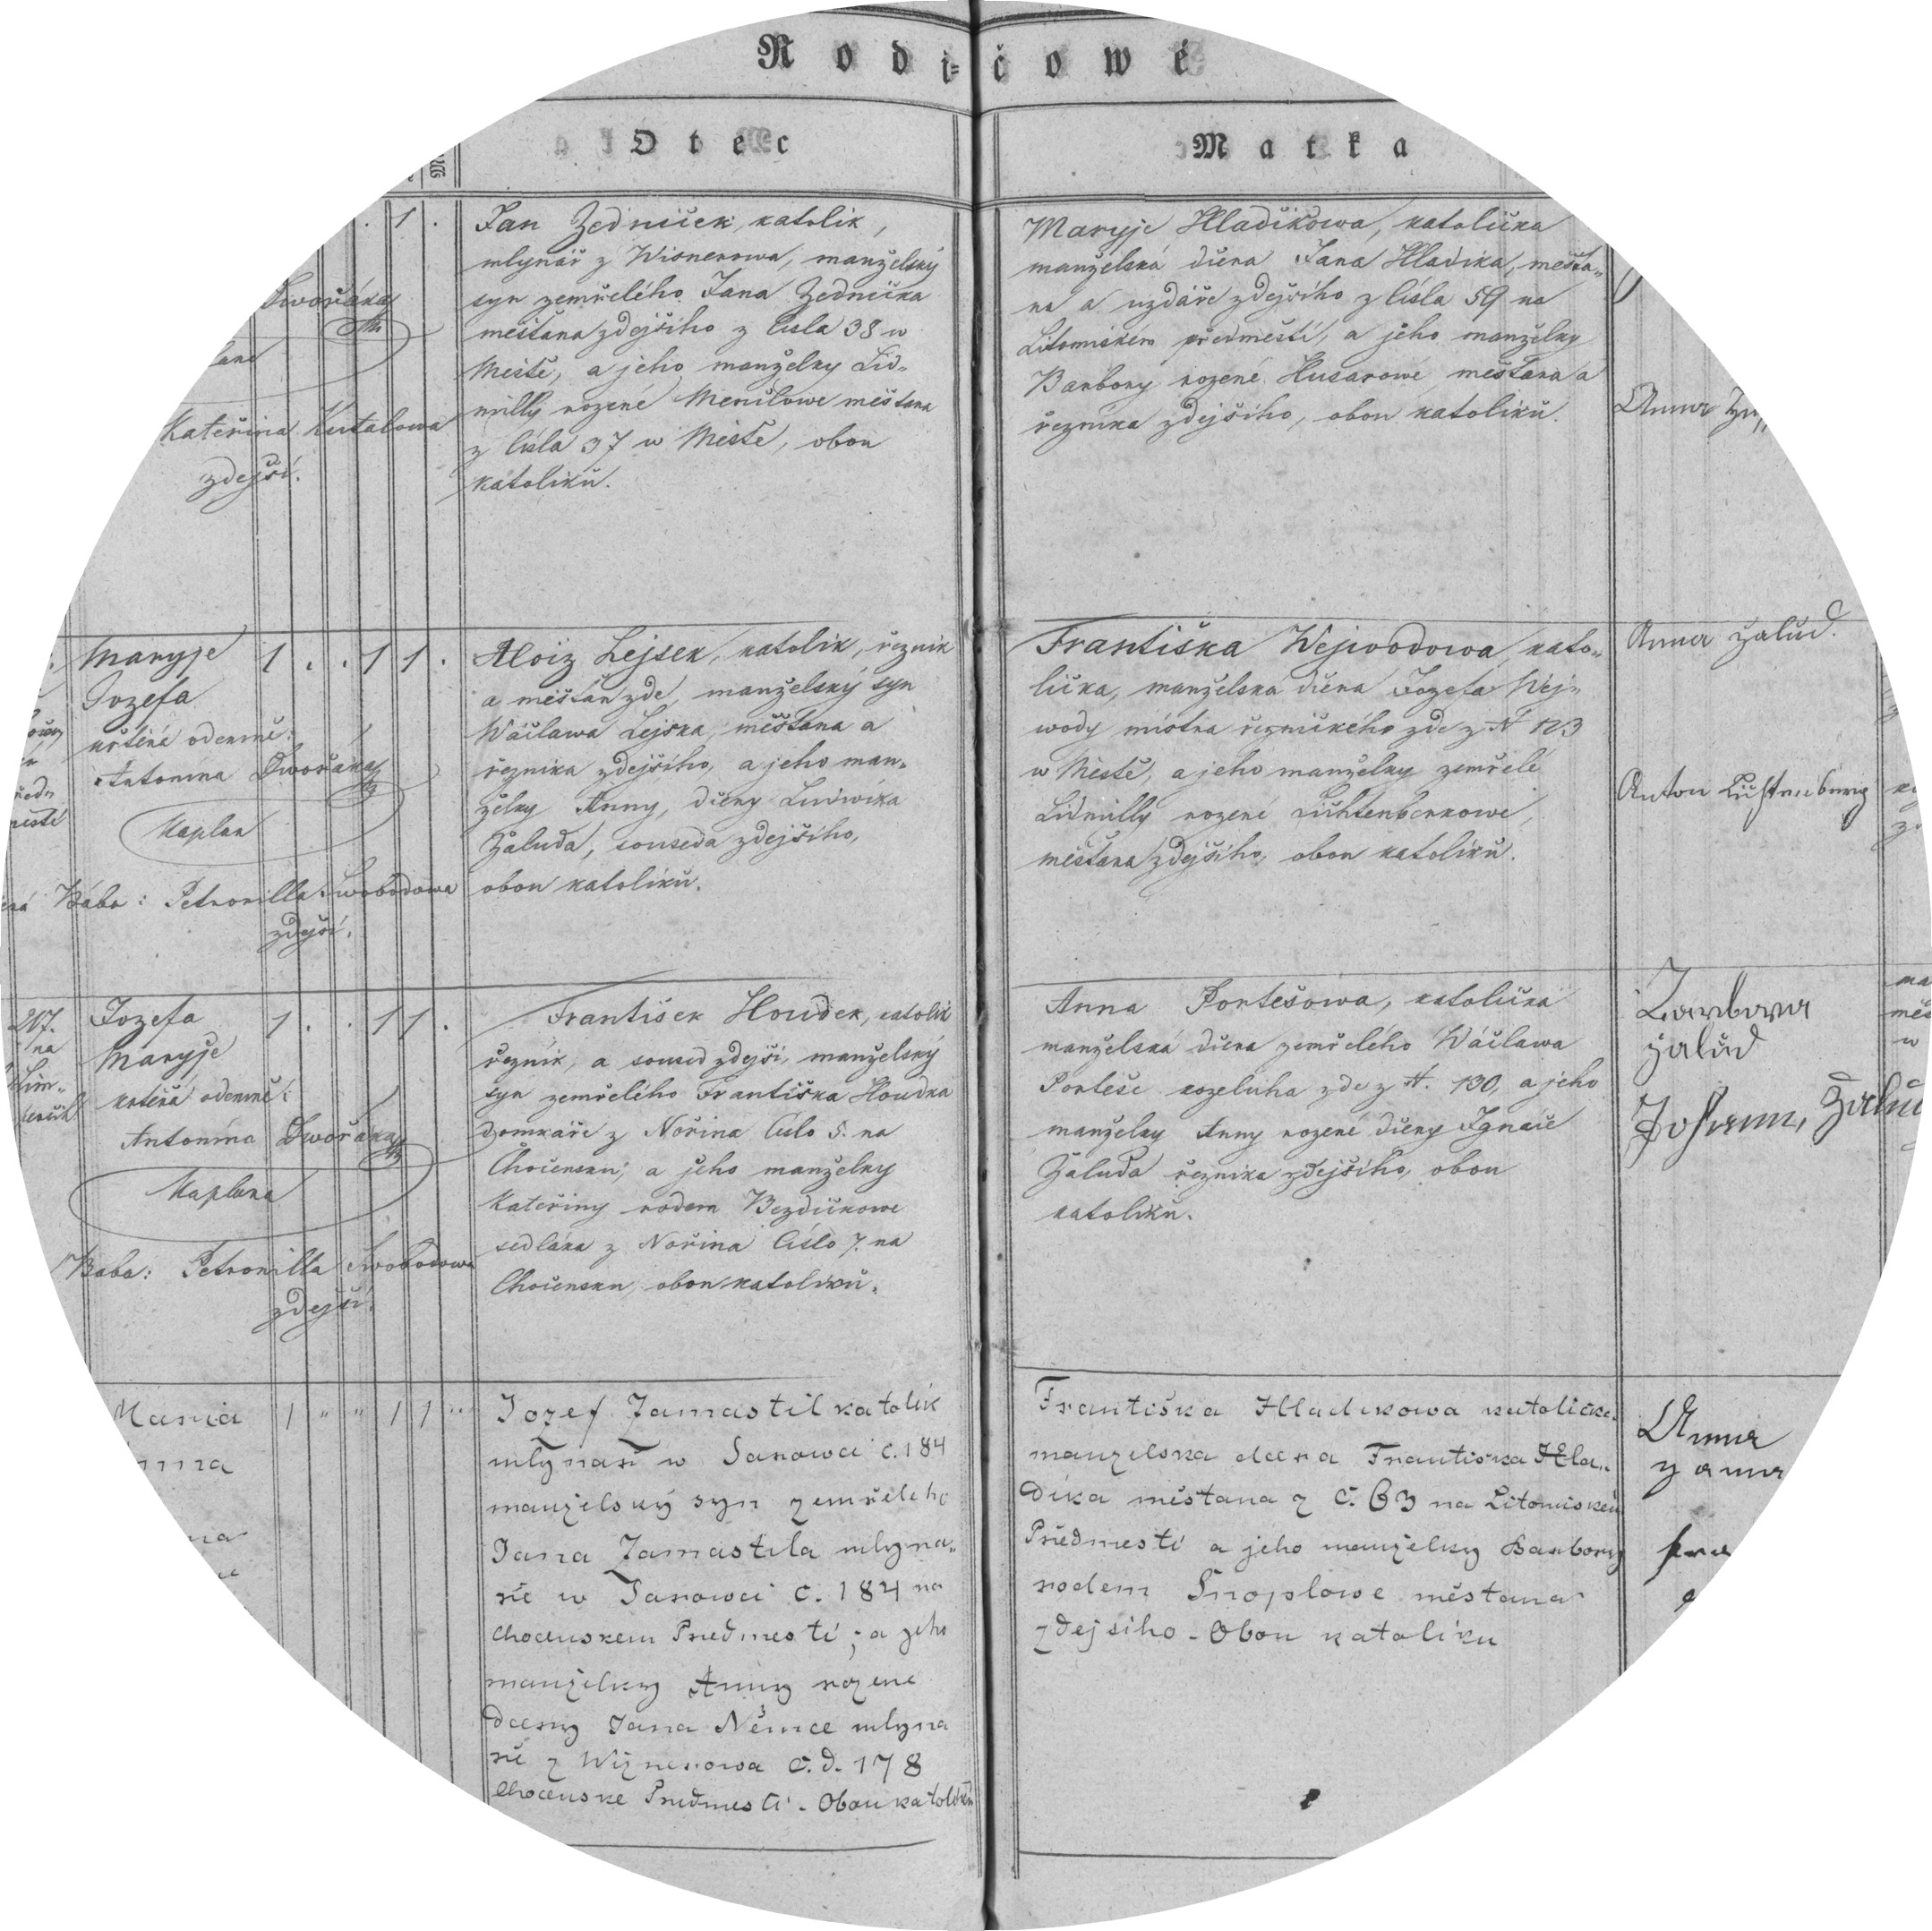 Rodi=čowé
Otec
Matka
Jan Zedníček, katolík,
mlynář z Wisnerowa, manželský
syn zemřelého Jana Zedníčka
měšťana zdejšího z čísla 38 w
Městě, a jeho manželky Lid-
milly rozené Menčlowe měšťana
z čísla 37 w Městě, obou
katolíků.
Maryje Hladíkowa, katolička
manželská dcéra Jana Hladíka, měšťa-
na a uzdáře zdejšího z čísla 59 na
Litomiském předměstí, a jeho manželky
Barbory rozené Husarowé měšťana a
řezníka zdejšího, obou katolíků.
Dwořáka
Kateřina Kutalowa
zdejší.
Anna
Maryje 1 . . 1 1 .
Jozefa
křtěné odemně:
Antonína Dwořáka
Kaplan
Bába: Petronilla Swobodowa
zdejší.
Aloiz Lejsek, katolík, řezník
a měšťan zde, manželský syn
Wáclawa Lejska, měšťana a
řezníka zdejšího, a jeho man-
želky Anny, dcéry Ludwíka
Žaluda, souseda zdejšího,
obou katolíků.
Františka Wejwodowa, kato-
lička, manželská dcéra Jozefa Wej-
wody mistra řeznického zde z N 123
w Městě, a jeho manželky zemřelé
Lidmilly rozené Lichtenberkowé,
měšťana zdejšího, obou katolíků.
Anna Žalud.
Anton Lichtenberg
207. Jozefa 1 . . 1 1 .
na Maryje
křtěná odemně:
Antonína Dwořáka
Kaplana
Baba: Petronilla Swobodowa
zdejší.
František Houdek, katolík
řezník, a soused zdejší, manželský
syn zemřelého Františka Houdka
domkáře z Nořína číslo 5. na
Chocensku; a jeho manželky
Kateřiny rodem Bezdíčkowe
sedláka z Nořína číslo 7. na
Chocensku, obou katolíků.
Anna Portešowa, katolička
manželská dcéra zemřelého Wáclawa
Porteše kozeluha zde z N. 130, a jeho
manželky Anny rozené dcéry Ignáce
Žaluda řezníka zdejšího, obou
katolíků.
Barbora
Žalud
Johann Žalud
Maria 1 " " 1 1 "
Jozef Zamastil katolík
mlynař w Janowci č. 184
manželský syn zemřelého
Jana Zamastila mlyna-
ře w Janowci č. 184 na
Chocenskem Předmestí; a jeho
manželky Anny rozene
dcery Jana Němce mlyna
ře z Wiznerowa č. d. 178
Chocenske Předmestí - Obou katolíků
Františka Hladikowa katolička
manzelska dcera Františka Hla-
díka městana z č. 63 na Litomiskem
Předmesti a jeho manželky Barbory
rodem Snoplowe městana
zdejsiho - Obou katolíku
Anna